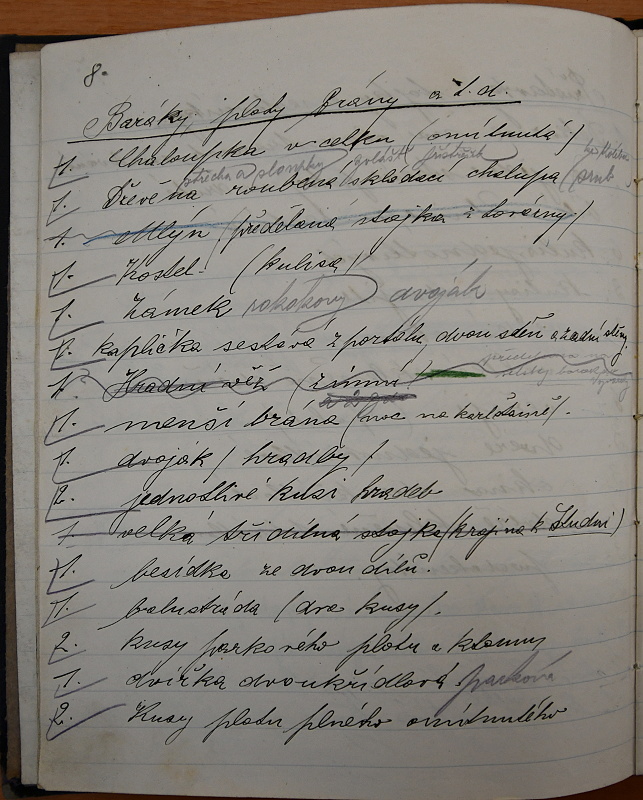 8.
Baráky, ploty Brány a t.d.
1. Chaloupka v celku (omítnutá)
střecha a sloupky zvlášť přístřeší
1. Dřevěna roubena skládací chalupa (srub
1. Mlýn (předělaná stojka z továrny)
1. Kostel (kulisa)
1. Zámek rokokový dvoják
1. kaplička sestává z portálu, dvou stěn a zadní stěny
1. Hradní věž (zimní
1. menší brána (noc na karlštaině).
1. dvoják (hradby)
2. jednotlivé kusi hradeb
1. velká třídílná stojka (krajina k Studni)
1. besídka ze dvou dílů.
1. balustráda (dva kusy).
2. kusy parkového plotu a
1. dvířka dvoukřídlová parková
2. Kusy plotu plného omítnutého